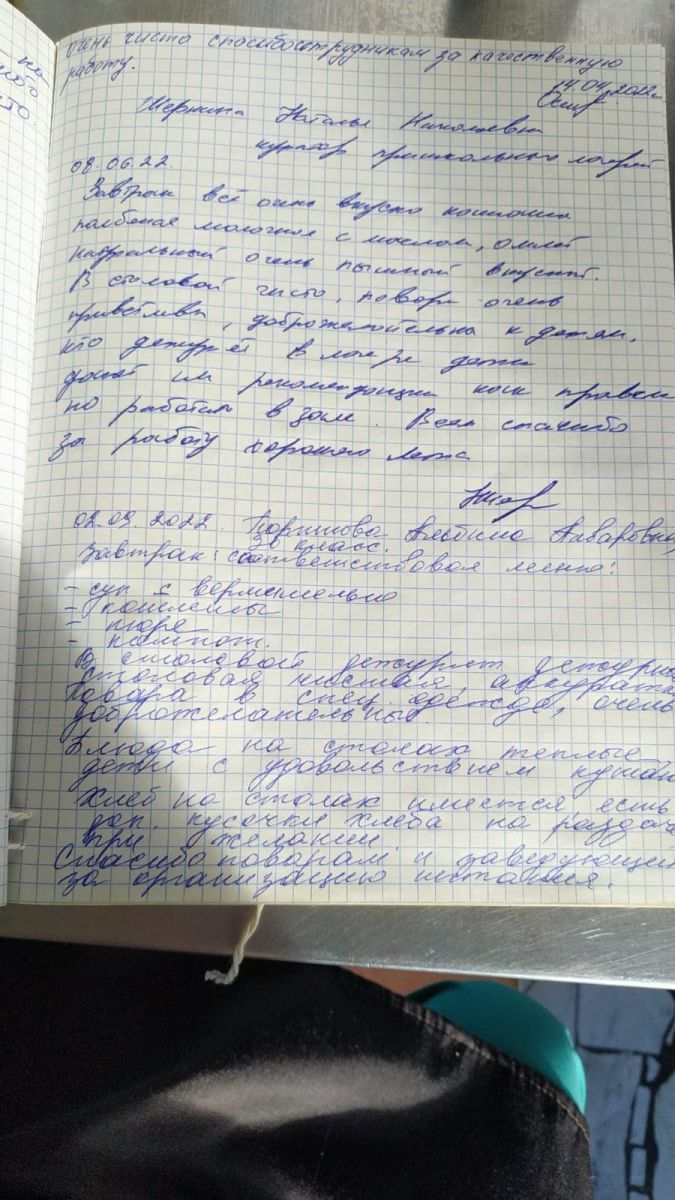 очень чисто спасибо сотрудникам за качественную
работу.
14.04.2022г
Наталья Николаевна
куратор пришкольного лагеря
08.06.22.
Завтрак всё очень вкусно
молочная с маслом, омлет
натуральный очень пышный вкусный.
В столовой чисто, повара очень
приветливы, доброжелательны к детям,
кто дежурят в лагере дети
дают им рекомендации как правильно
но работать в зале. Всем спасибо
за работу хорошего лета
02.09.2022. Альбина
3а класс.
Завтрак: соответствовал меню:
- суп с вермишелью
- котлеты
- пюре
- компот.
В столовой дежурят
столовая чистая,
Повара в спец. одежде, очень
доброжелательные.
Блюда на столах теплые
дети с удовольствием
Хлеб на столах имеется есть
доп. кусочки хлеба на раздаче
при желании.
Спасибо поварам и заведующей
за организацию питания.